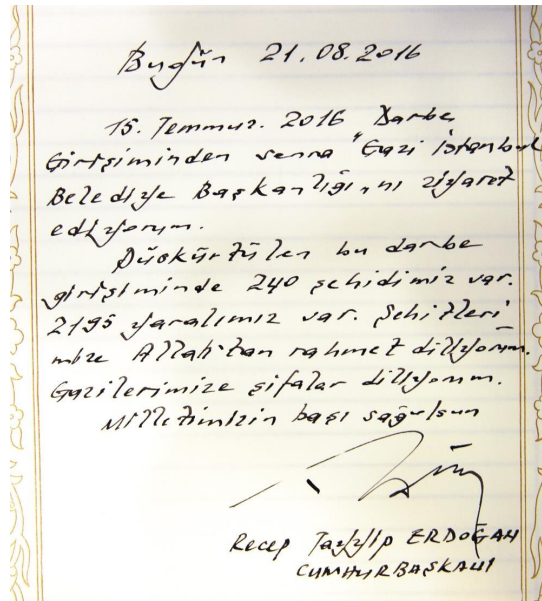 Bugün 21.08.2016
15. Temmuz. 2016 Darbe
Girişiminden sonra "Gazi İstanbul
Belediye Başkanlığı,nı ziyaret
ediyorum.
Püskürtülen bu darbe
girişiminde 240 şehidimiz var.
2195 yaralımız var. Şehitleri
mize Allah'tan rahmet diliyorum.
Gazilerimize şifalar diliyorum.
Milletimizin başı sağolsun
Recep Tayyip ERDOĞAN
CUMHURBAŞKANI